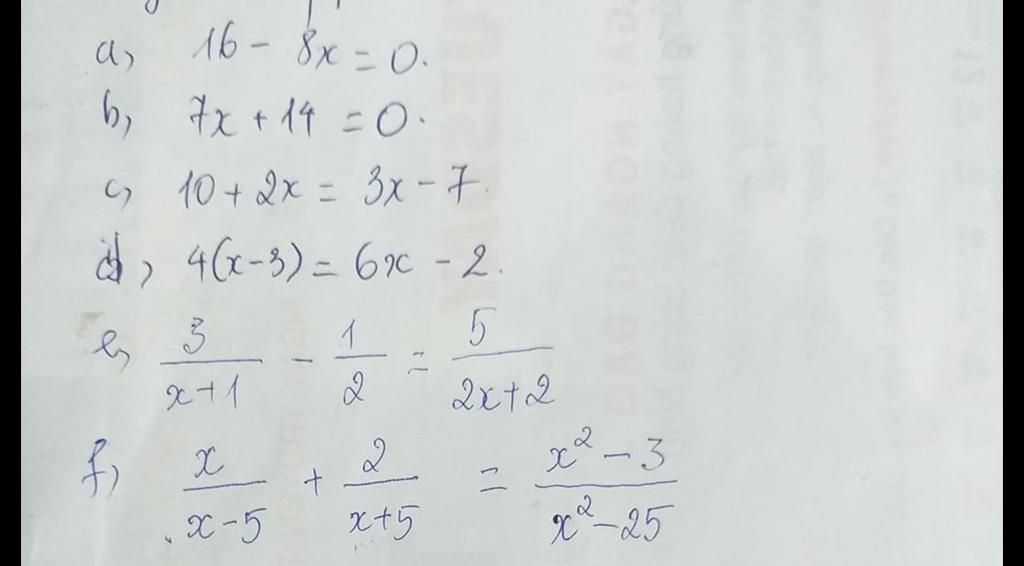 a, 16 - 8x = 0.
b, 7x + 14 = 0.
c, 10 + 2x = 3x - 7.
d, 4(x-3) = 6x - 2.
e, 3/(x+1) - 1/2 = 5/(2x+2)
f, x/(x-5) + 2/(x+5) = (x² - 3)/(x² - 25)